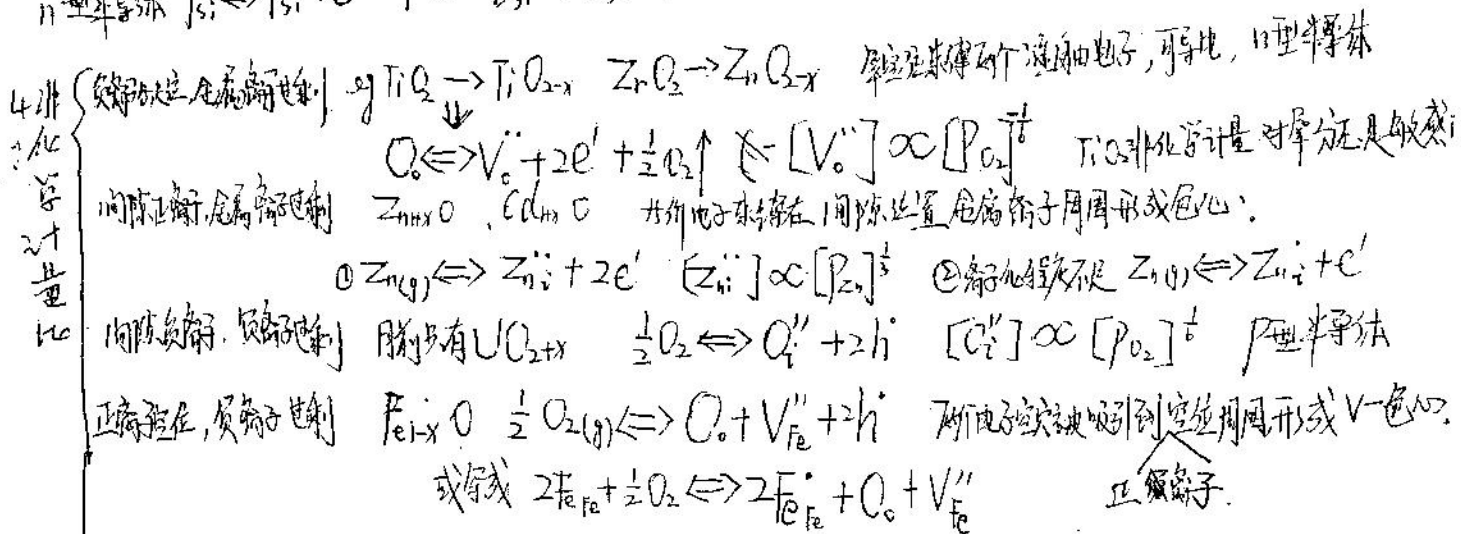 n型半导体
4.非化学计量化
负离子缺位,金属离子过剩 eg TiO₂ → TiO₂₋ₓ ZrO₂ → ZrO₂₋ₓ 束缚两个自由电子,可导电,n型半导体
⇓
Oₒ ⇔ Vₒ¨ + 2e′ + ½O₂↑ [Vₒ¨] ∝ [P_O₂]^(-1/6) TiO₂非化学计量对氧分压是敏感
间隙正离子,金属离子过剩 Zn₁₊ₓO , Cd₁₊ₓO 电子束缚在间隙位置金属离子周围形成色心.
① Zn(g) ⇔ Znᵢ¨ + 2e′ [Znᵢ¨] ∝ [P_Zn]^(1/3) ②离子化程度不足 Zn(g) ⇔ Znᵢ˙ + e′
间隙负离子,负离子过剩 目前只有UO₂₊ₓ ½O₂ ⇔ Oᵢ″ + 2h˙ [Oᵢ″] ∝ [P_O₂]^(1/6) P型半导体
正离子空位,负离子过剩 Fe₁₋ₓO ½O₂(g) ⇔ Oₒ + V_Fe″ + 2h˙ 两个电子空穴被吸引到空位周围形成V-色心.
或写成 2Fe_Fe + ½O₂ ⇔ 2Fe_Fe˙ + Oₒ + V_Fe″ 正离子.